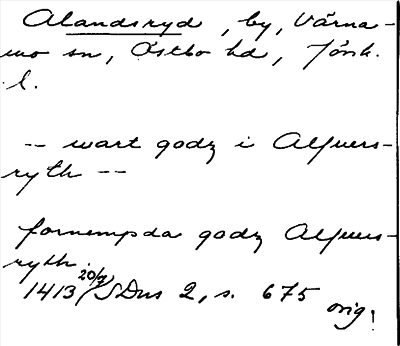 Alandsryd, by, Värna-
mo sn, Östbo hd, Jönk.
l.
-- wart godz i Alfuers-
ryth --
fornempda godz Alfuers-
ryth.
1413 20/9 SDns 2, s. 675
orig.